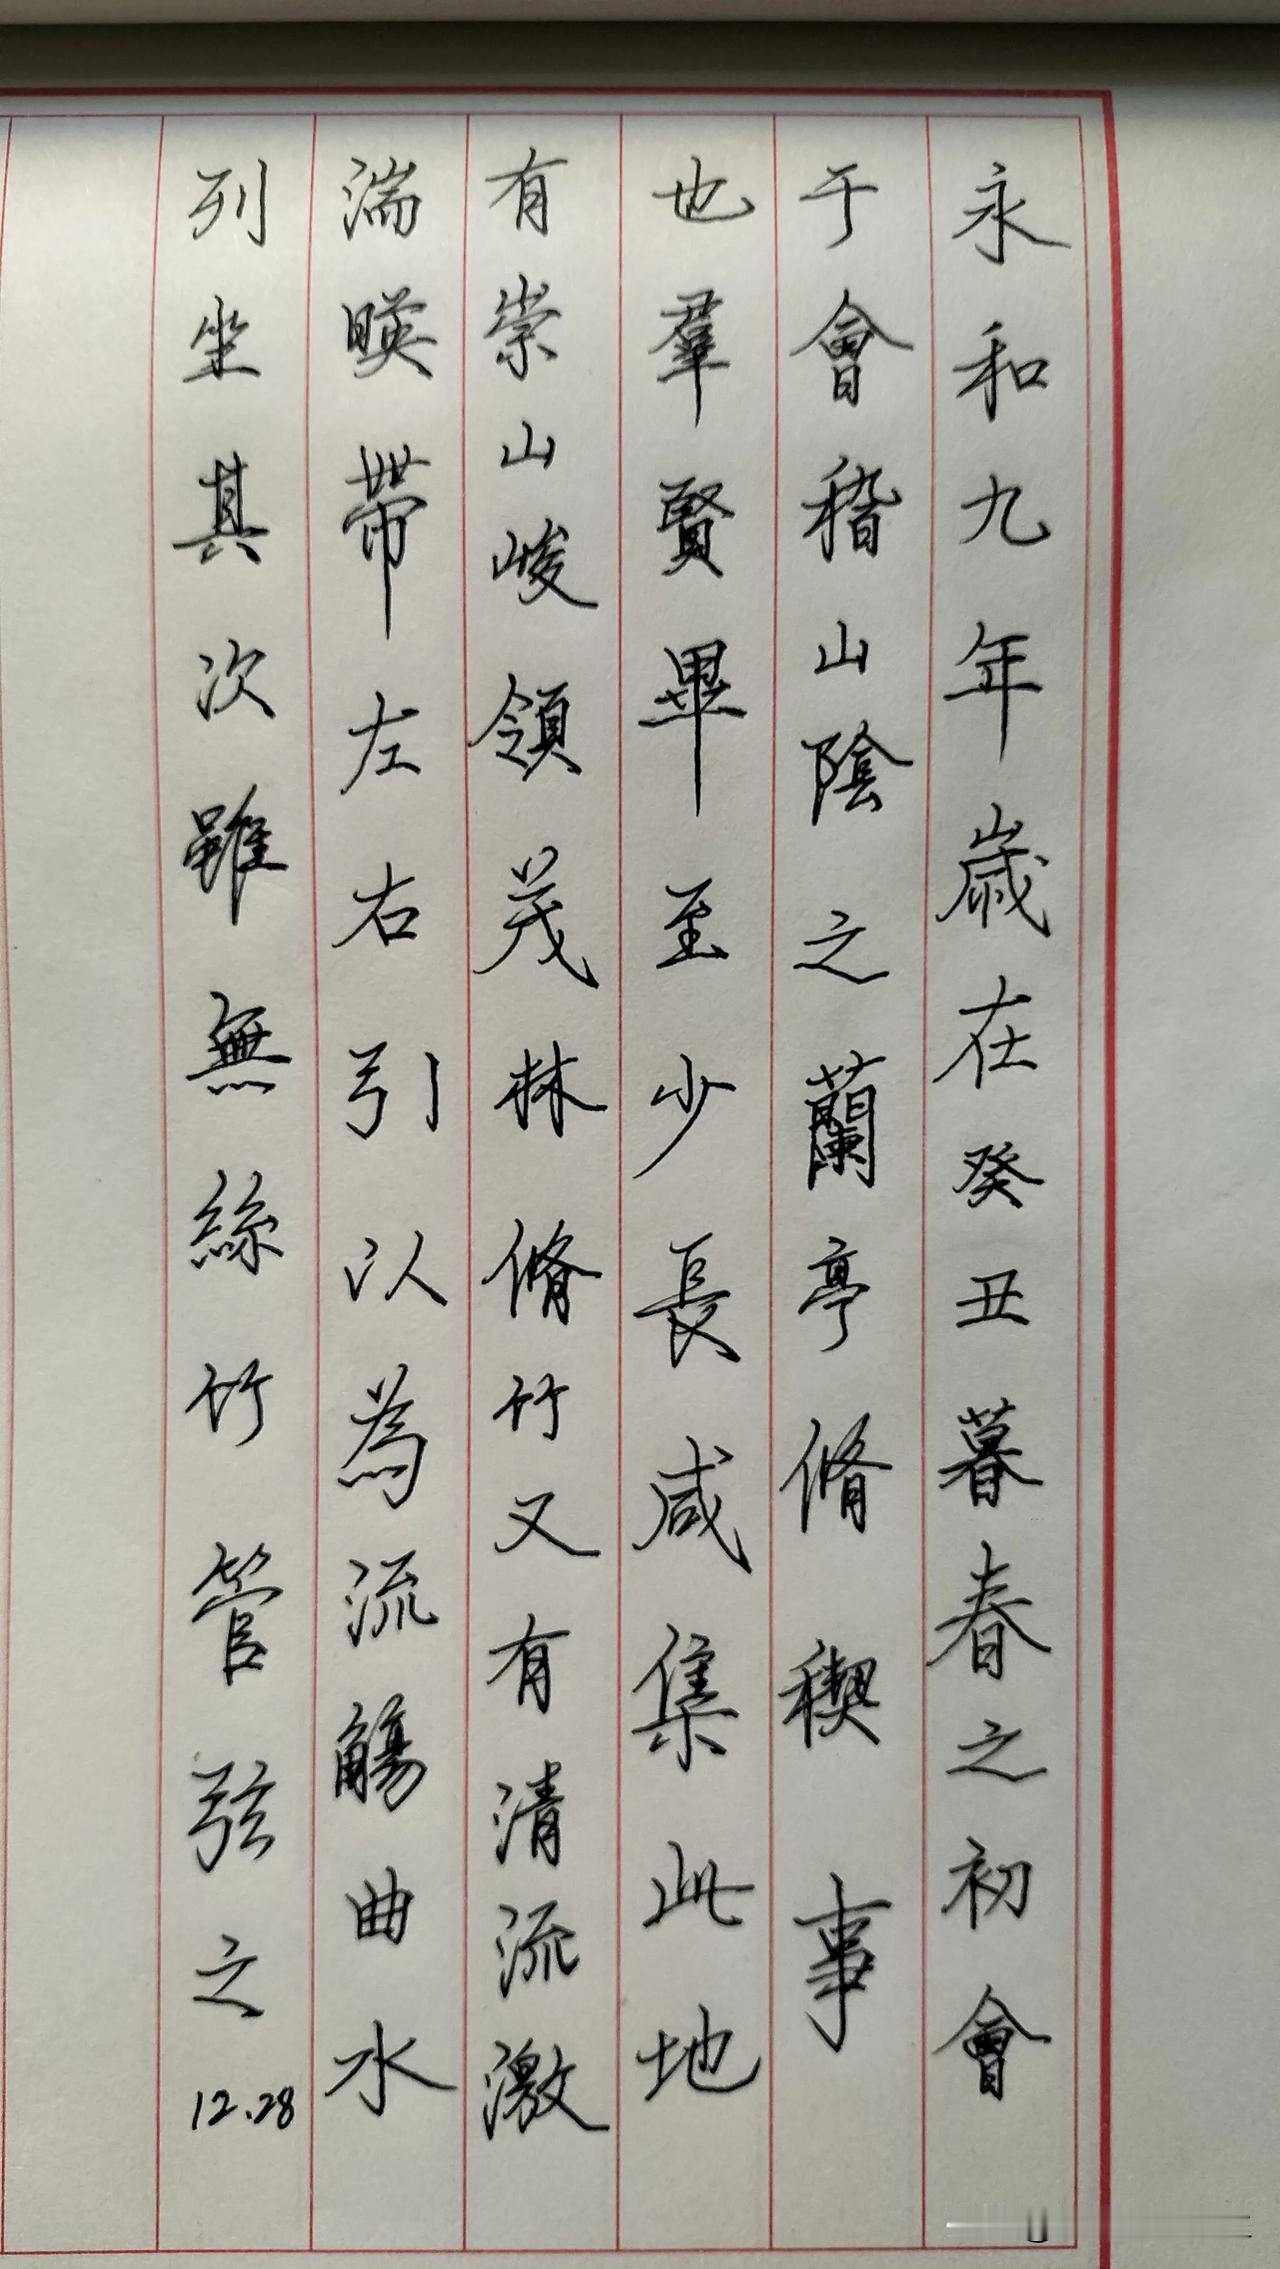 永和九年歲在癸丑暮春之初會
于會稽山陰之蘭亭脩稧事
也羣賢畢至少長咸集此地
有崇山峻領茂林脩竹又有清流激
湍暎帶左右引以為流觴曲水
列坐其次雖無絲竹管弦之
12.28